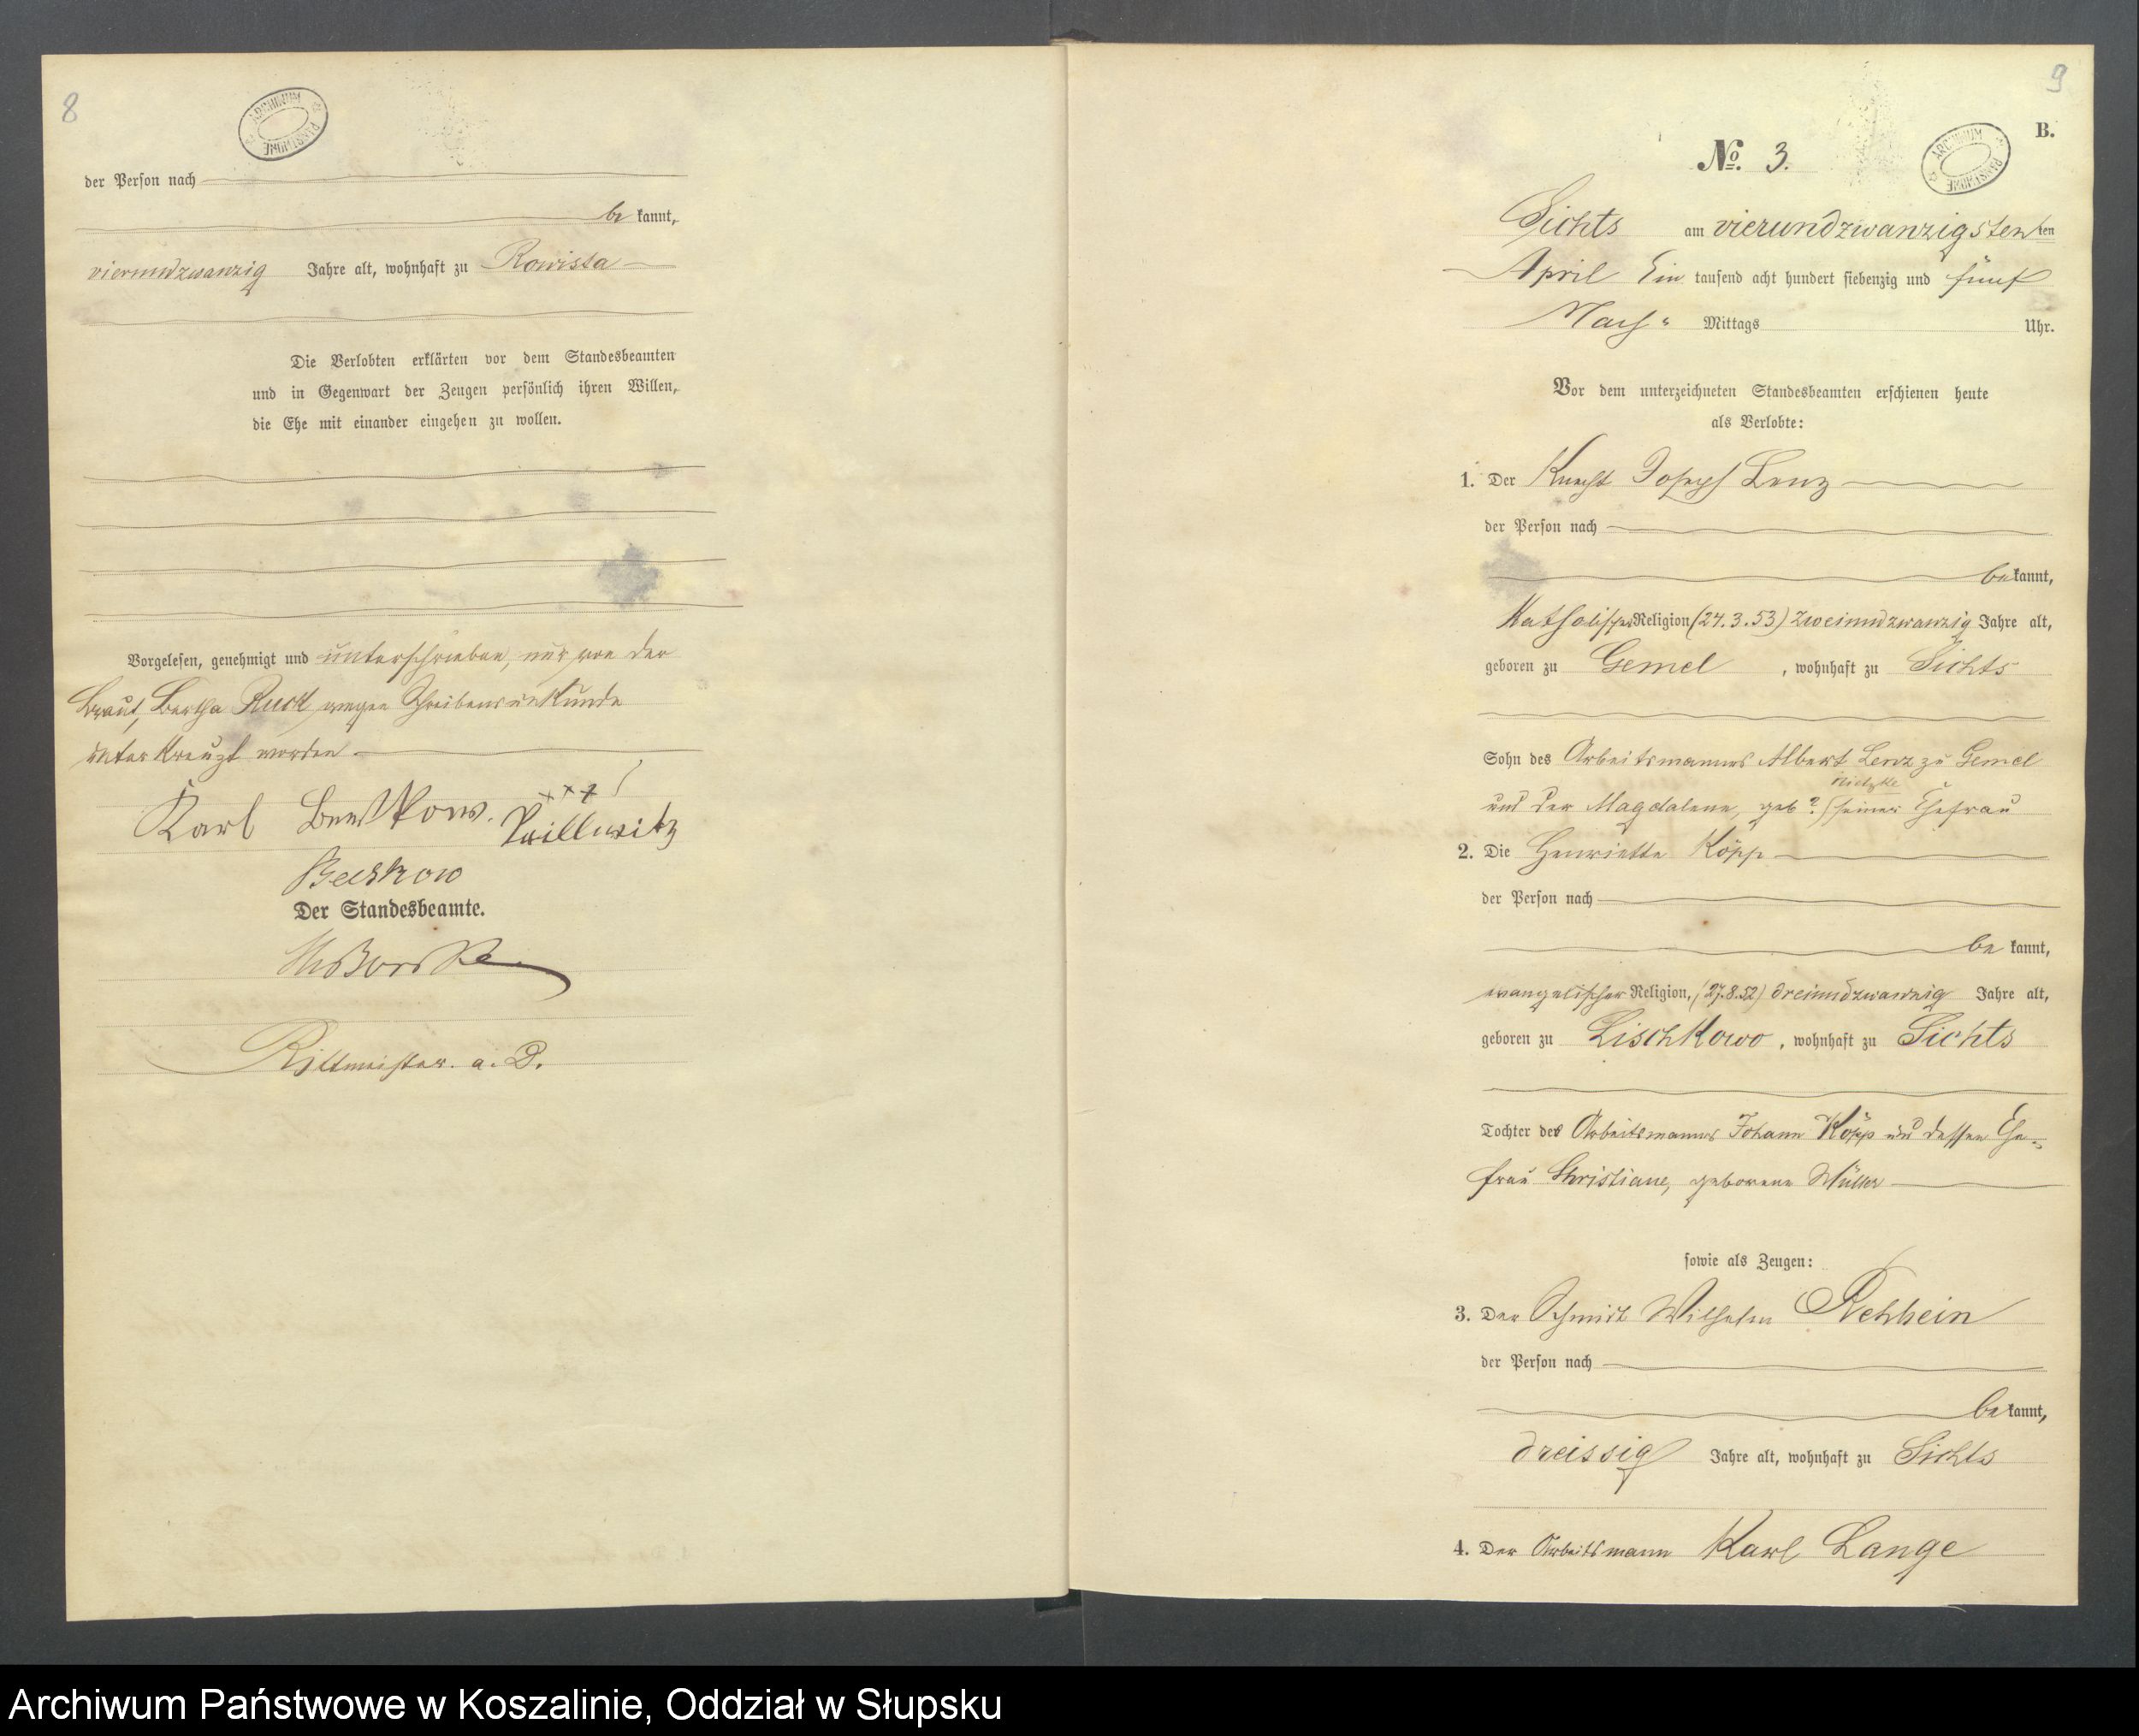 8
ARCHIWUM PAŃSTWOWE
der Person nach
be kannt,
vierundzwanzig Jahre alt, wohnhaft zu Rowista
Die Verlobten erklärten vor dem Standesbeamten
und in Gegenwart der Zeugen persönlich ihren Willen,
die Ehe mit einander eingehen zu wollen.
Vorgelesen, genehmigt und unterschrieben, nur von der
Braut, Bertha Ruck wegen Schreibensunkunde
unterkreuzt worden
Karl
+++
Prillwitz
Beeskow
Der Standesbeamte.
Rittmeister a. D.
9
B.
ARCHIWUM PAŃSTWOWE
No. 3.
Sichts am vierundzwanzigsten ten
April Ein tausend acht hundert siebenzig und fünf
Nach " Mittags Uhr.
Vor dem unterzeichneten Standesbeamten erschienen heute
als Verlobte:
1. Der Knecht Joseph Lenz
der Person nach
be kannt,
Katholischer Religion (24.3.53) zweiundzwanzig Jahre alt,
geboren zu Gemel , wohnhaft zu Sichts
Sohn des Arbeitsmannes Albert Lenz zu Gemel
und der Magdalena, geb ? seiner Ehefrau
2. Die Henriette Köpp
der Person nach
be kannt,
evangelischer Religion, (27.8.52) dreiundzwanzig Jahre alt,
geboren zu Lischkowo , wohnhaft zu Sichts
Tochter des Arbeitsmannes Johann Köpp und dessen Ehe-
frau Christiane, geborene Müller
sowie als Zeugen:
3. Der Schmidt Wilhelm Rehbein
der Person nach
be kannt,
dreissig Jahre alt, wohnhaft zu Sichts
4. Der Arbeitsmann Karl Lange
Archiwum Państwowe w Koszalinie, Oddział w Słupsku